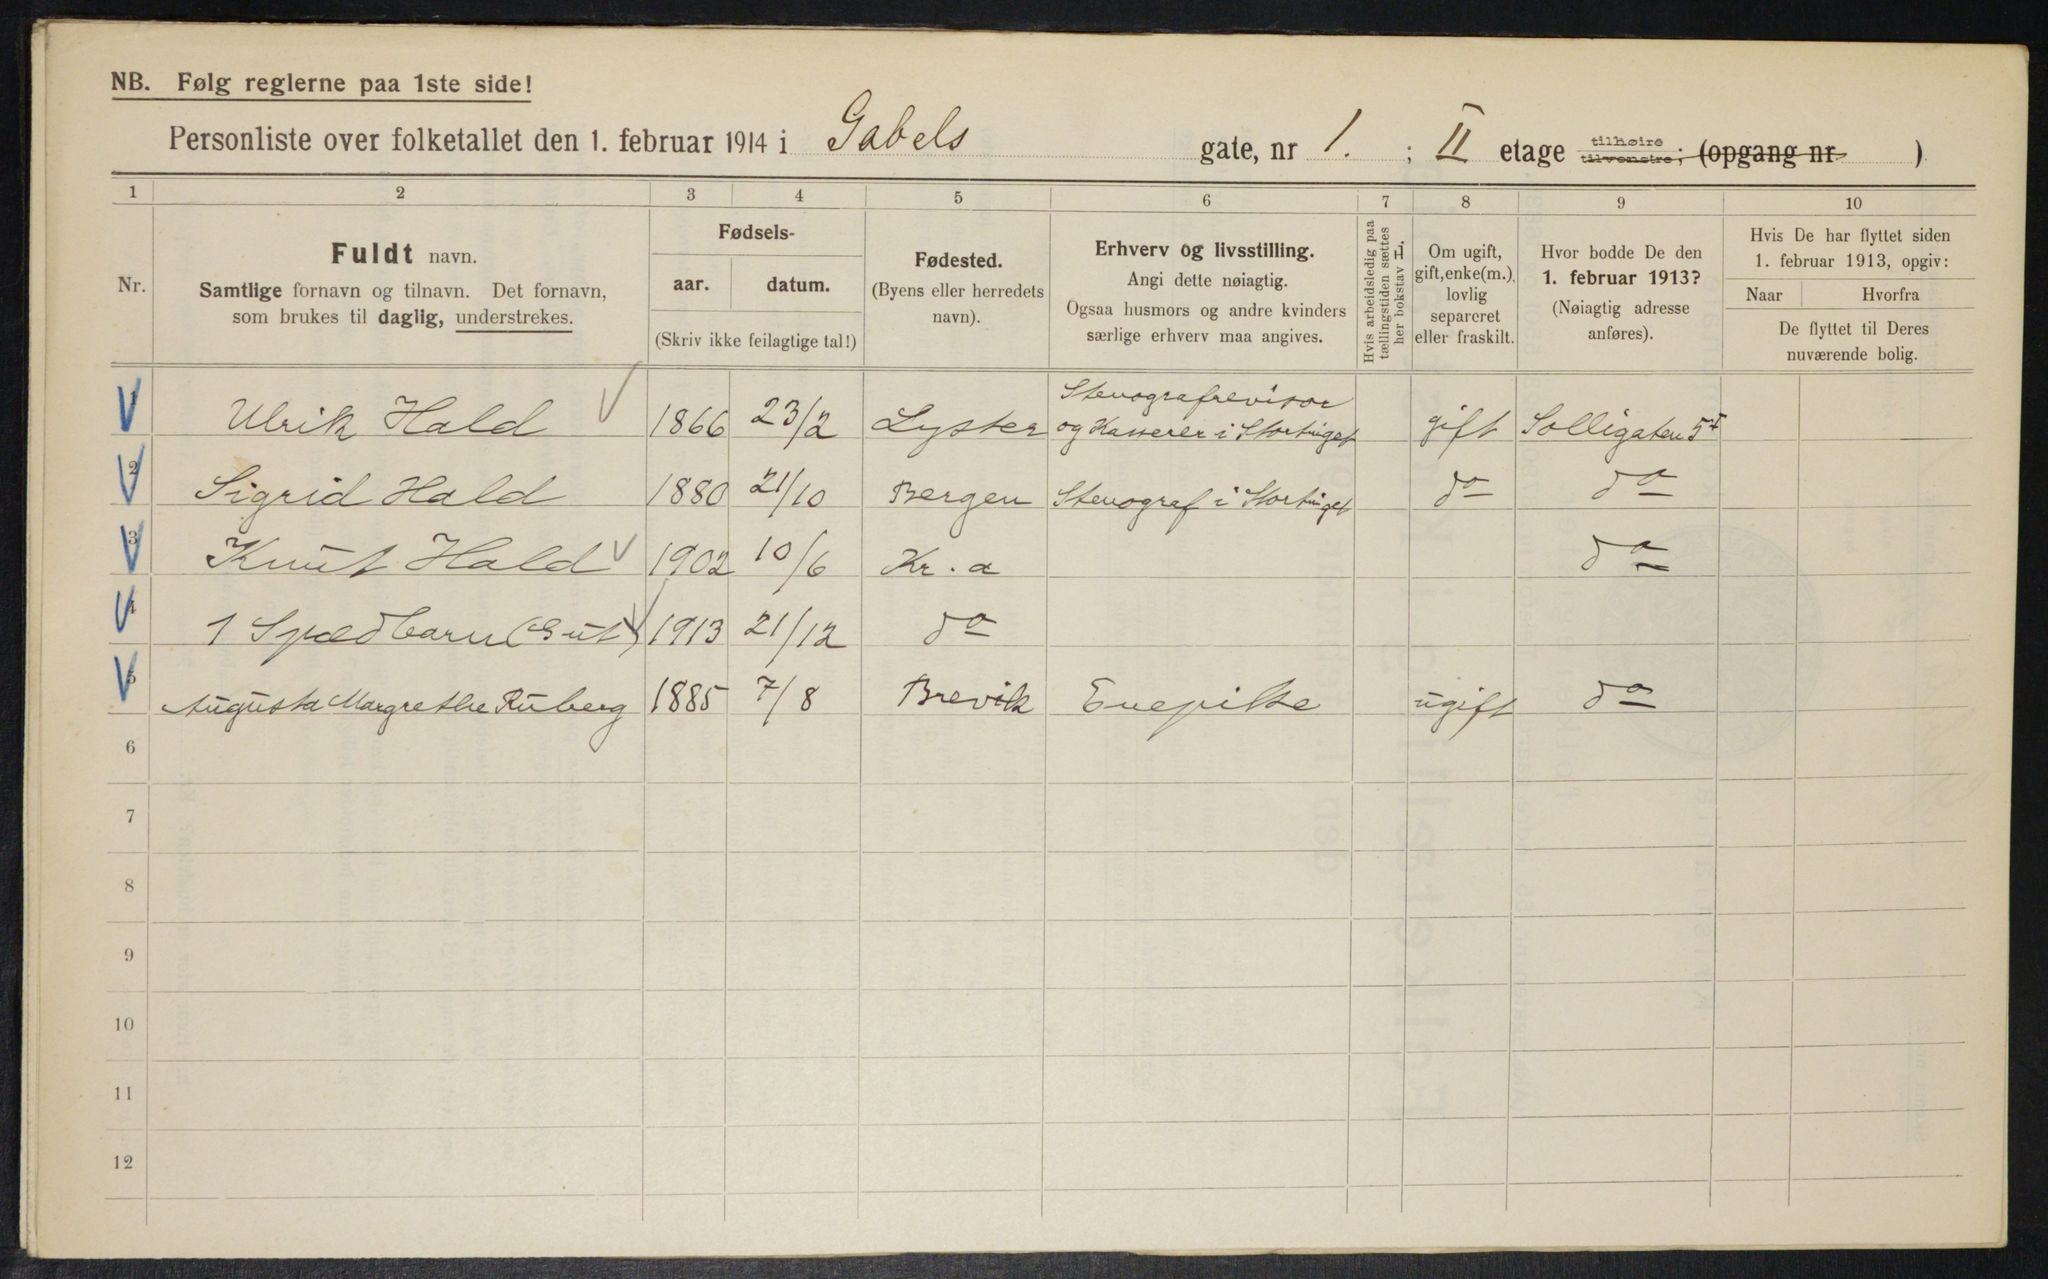 NB. Følg reglerne paa 1ste side!
Personliste over folketallet den 1. februar 1914 i Gabels gate, nr 1. ; II etage tilhøire tilvenstre; (opgang nr )
1 2 3 4 5 6 7 8 9 10
Nr.
Fuldt navn.
Samtlige fornavn og tilnavn. Det fornavn,
som brukes til daglig, understrekes.
Fødsels-
aar. datum.
(Skriv ikke feilagtige tal!)
Fødested.
(Byens eller herredets
navn).
Erhverv og livsstilling.
Angi dette nøiagtig.
Ogsaa husmors og andre kvinders
særlige erhverv maa angives.
Hvis arbeidsledig paa
tællingstiden sættes
her bokstav l.
Om ugift,
gift, enke(m.),
lovlig
separeret
eller fraskilt.
Hvor bodde De den
1. februar 1913?
(Nøiagtig adresse
anføres).
Hvis De har flyttet siden
1. februar 1913, opgiv:
Naar Hvorfra
De flyttet til Deres
nuværende bolig.
1 Ulrik Hald 1866 23/2 Lyster Stenografrevisor
og Kasserer i Stortinget gift Solligaten 5 I
2 Sigrid Hald 1880 21/10 Bergen Stenograf i Stortinget do do
3 Knut Hald 1902 10/6 Kr.a do
4 1 Spædbarn (Gut) 1913 21/12 do
5 Augusta Margrethe Ruberg 1885 7/8 Brevik Enepike ugift do
6
7
8
9
10
11
12